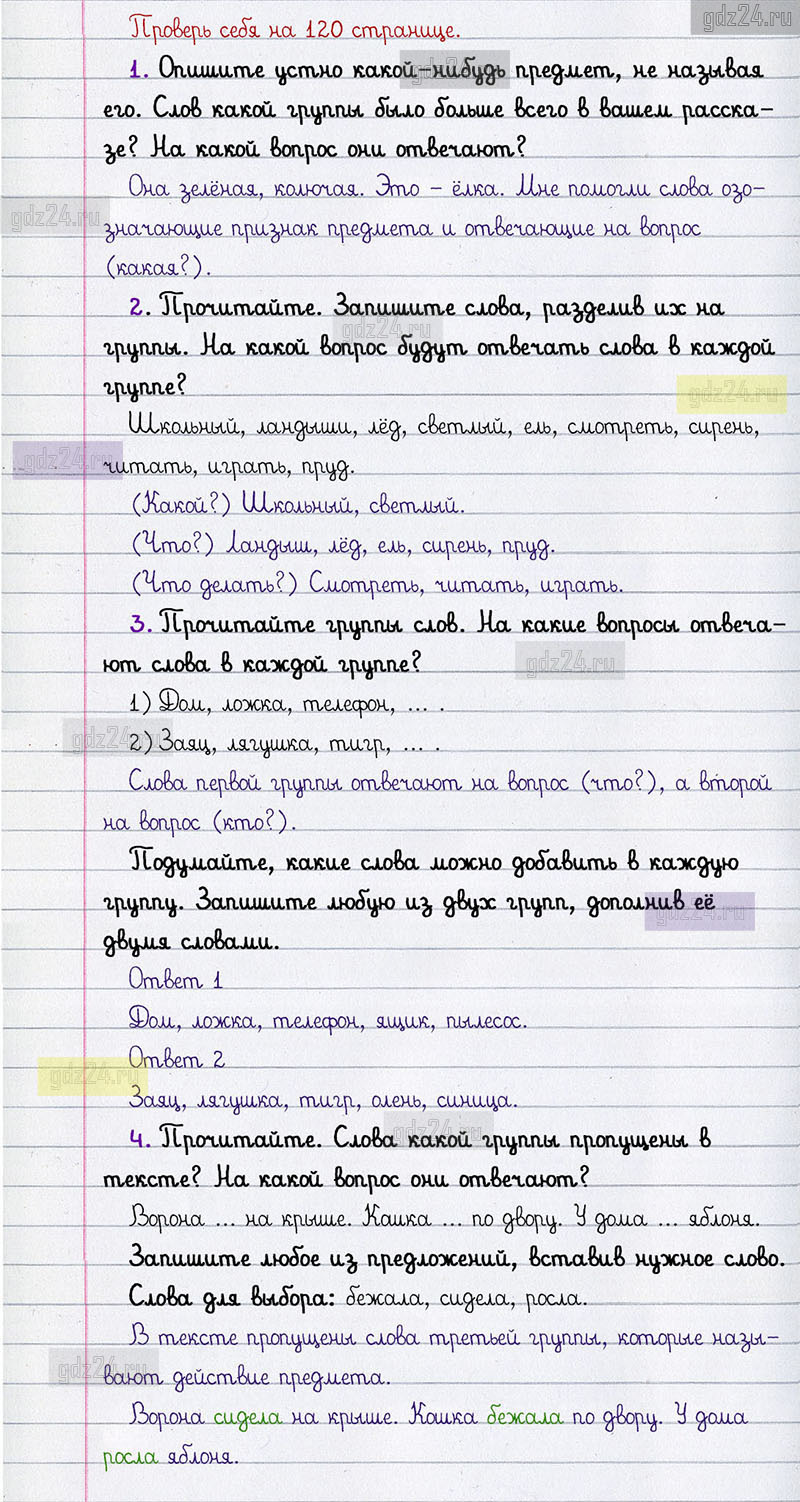 gdz24.ru
Проверь себя на 120 странице.
1. Опишите устно какой-нибудь предмет, не называя
его. Слов какой группы было больше всего в вашем расска-
зе? На какой вопрос они отвечают?
Она зелёная, колючая. Это - ёлка. Мне помогли слова озо-
gdz24.ru
значающие признак предмета и отвечающие на вопрос
(какая?).
2. Прочитайте. Запишите слова, разделив их на
gdz24.ru
группы. На какой вопрос будут отвечать слова в каждой
группе?
gdz24.ru
Школьный, ландыши, лёд, светлый, ель, смотреть, сирень,
gdz24.ru
читать, играть, пруд.
(Какой?) Школьный, светлый.
(Что?) Ландыш, лёд, ель, сирень, пруд.
(Что делать?) Смотреть, читать, играть.
3. Прочитайте группы слов. На какие вопросы отвеча-
ют слова в каждой группе?
gdz24.ru
1) Дом, ложка, телефон, ... .
gdz24.ru
2) Заяц, лягушка, тигр, ... .
Слова первой группы отвечают на вопрос (что?), а второй
на вопрос (кто?).
Подумайте, какие слова можно добавить в каждую
группу. Запишите любую из двух групп, дополнив её
gdz24.ru
двумя словами.
Ответ 1
Дом, ложка, телефон, ящик, пылесос.
Ответ 2
gdz24.ru
Заяц, лягушка, тигр, олень, синица.
gdz24.ru
4. Прочитайте. Слова какой группы пропущены в
тексте? На какой вопрос они отвечают?
Ворона ... на крыше. Кашка ... по двору. У дома ... яблоня.
Запишите любое из предложений, вставив нужное слово.
Слова для выбора: бежала, сидела, росла.
В тексте пропущены слова третьей группы, которые назы-
gdz24.ru
вают действие предмета.
Ворона сидела на крыше. Кашка бежала по двору. У дома
росла яблоня.